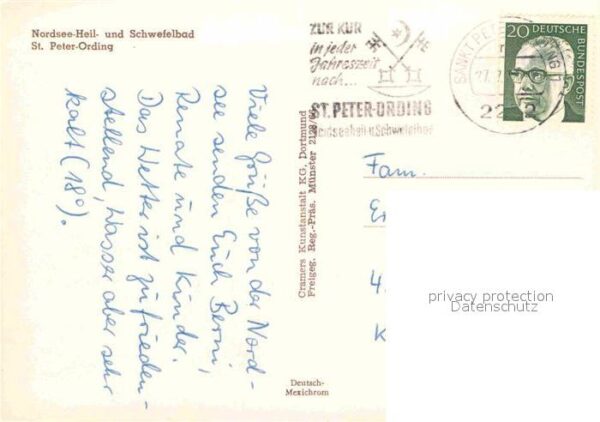 Nordsee-Heil- und Schwefelbad
St. Peter-Ording
Viele Grüße von der Nord-
see senden Euch Berni,
Renate und Kinder.
Das Wetter ist zufrieden-
stellend, Wasser aber sehr
kalt (18°).
Cramers Kunstanstalt KG, Dortmund
Freigeg. Reg.-Präs. Münster
Deutsch-
Mexichrom
ZUR KUR
in jeder
Jahreszeit
nach...
ST. PETER-ORDING
SANKT PETER
20 DEUTSCHE
BUNDESPOST
Fam.
privacy protection
Datenschutz